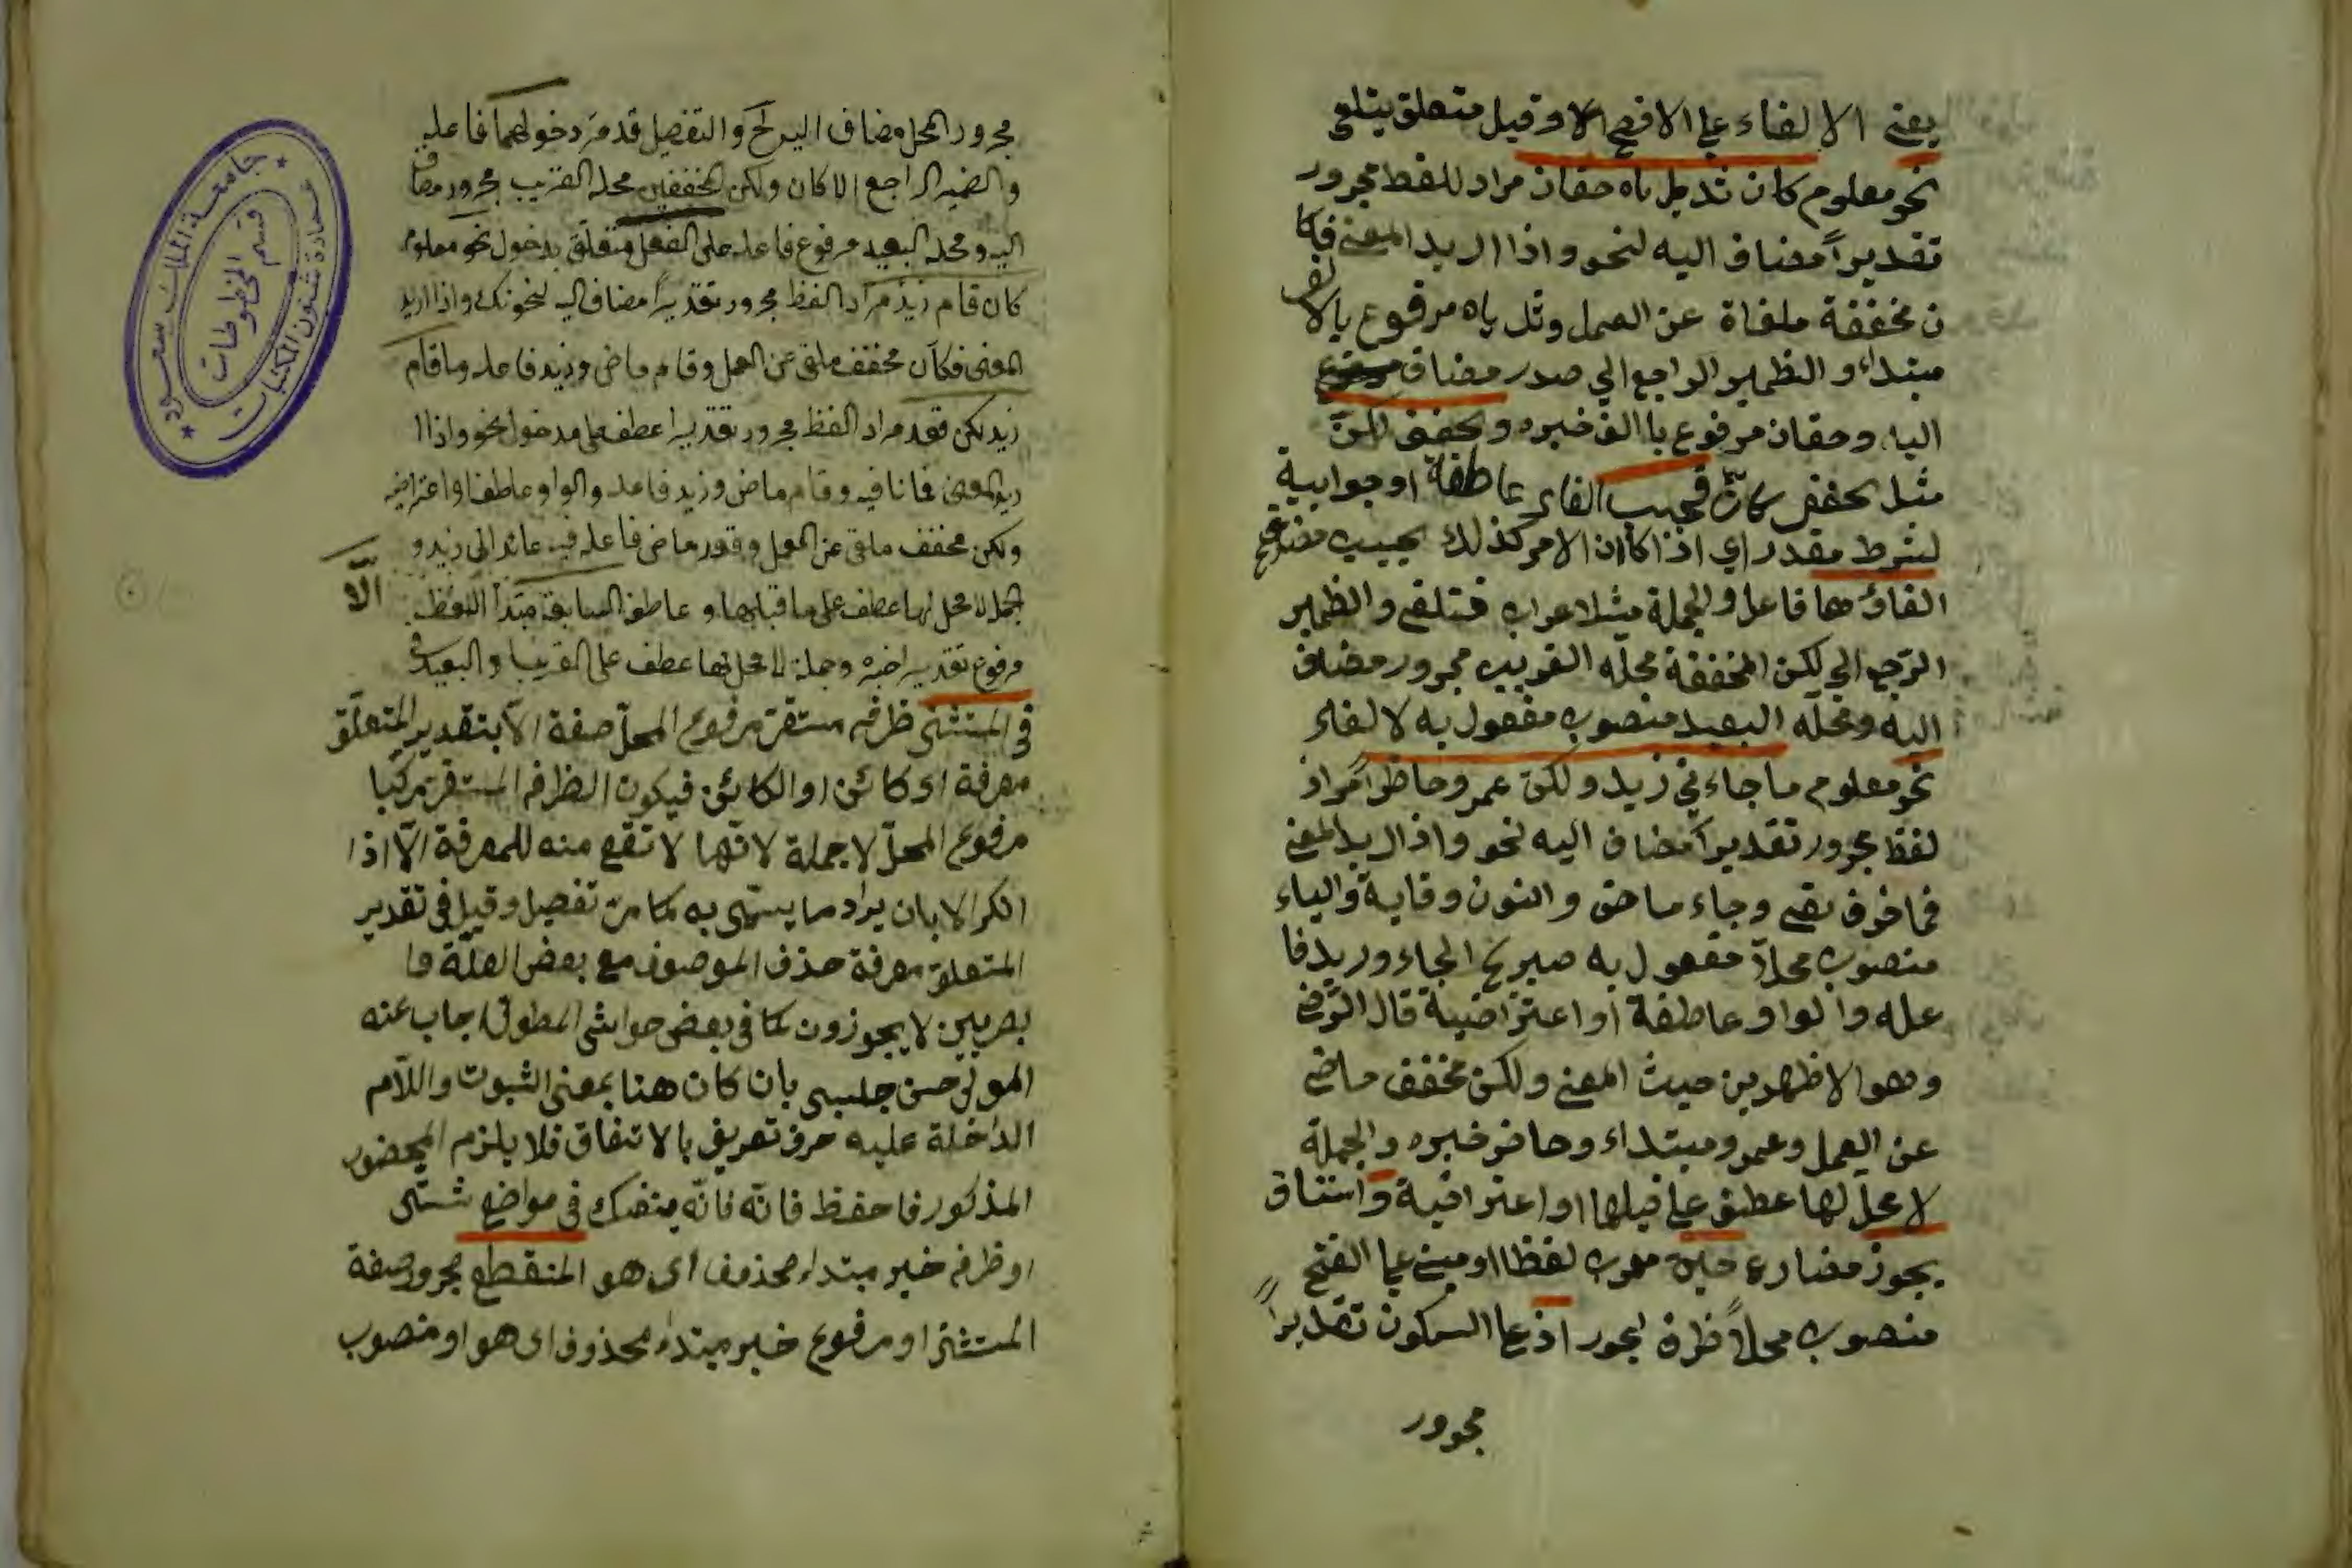 يعني الا لغاء علي الافصح الا وقيل متعلق بتلغي
نحو معلوم كان ثديياه حقان مراد للفظ مجرور
تقديراً مضاف اليه لنحو واذا اريد المعني فكا
ن مخففة ملغاة عن العمل وثدياه مرفوع بالالف
مبتداء والظمير الراجع الي صدر مضاف
اليه وحقان مرفوع باالف خبره وتخفف لكنّ
مثل تخفف كانّ فيجب الفاء عاطفة او جوابية
لشرط مقدر اي اذا كان الامر كذلك يجيب مضارع
الغاؤهما فاعل والجملة مثلا عراب فتلغي والظمير
الرجع الي لكن المخففة محله القريب مجرور مضاف
اليه ومحله البعيد منصوب مفعول به لالغاء
نحو معلوم ما جاءني زيد ولكن عمرو حاظر مراد
لفظ مجرور تقديراً مضاف اليه لنحو واذا اريد المعني
فما حرف نفي وجاء ماضي والنون وقاية والياء
منصوب محلاً مفعول به صيريح لجاء وزيد فا
عله والواو عاطفة او اعتراضية قال الرّضي
وهو الاظهر من حيث المعني ولكن مخفف
عن العمل وعمرو مبتداء وحاضر خبره والجملة
لا محلّ لها عطف علي قبلها او اعتراضية واستئناف
يجوز مضارع معرب لفظا او مبني علي الفتح
منصوب محلاً ظرف ليجوز اذ علي السكون تقديراً
مجرور
مجرور المحل مضاف اليه لخ والتفصيل قد مرّ دخولهما فاعله
والضمير الراجع الا كان ولكن المخففين محله القريب مجرور مضاف
اليه ومحله البعيد مرفوع فاعله على الفعل متعلق بدخول نحو معلوم
كان قام زيد مراد الفظ مجرور تقديراً مضاف اليه لنحو واذا اريد
المعنى فكأن مخفف ملغى عن العمل وقام ماض وزيد فاعله وما قام
زيد لكن قعد مراد الفظ مجرور تقديرا عطف على مدخول نحو واذا ا
ريد المعنى فما نافيه وقام ماض وزيد فاعله والواو عاطفة او اعتراضيه
ولكن مخفف ملغى عن العمل وقعد ماض فاعله فيه عائد الى زيد و
الجملة لا محل لها عطف على ما قبلها و عاطفة السابقة مبتدأ اللفظ
الّا
مرفوع تقديرا خبره وجملة لا محل لها عطف على القريب او البعيد
في المستثنى ظرف مستقر مرفوع المحلّ صفة الّا بتقدير المتعلّق
معرفة اى كائن او الكائن فيكون الظرف المستقر مركبا
مرفوع المحلّ لا جملة لانّها لا تقع صفة للمعرفة الّا اذا
انكر الا بان يراد ما يسمّى به كما مرّ تفصيل وقيل في تقدير
المتعلق معرفة حذف الموصوف مع بعض الصلة وا
بصريين لا يجوزون كما في بعض حواشى المطول اجاب عنه
المولى حسن جلبى بان كان هنا بمعنى الثبوت واللّام
الداخلة عليه حرف تعريف بالاتفاق فلا يلزم المحضور
المذكور فاحفظ فانّه فانّه ينفعك في مواضع شتّى
او ظرف خبر مبتداء محذوف اى هو المنقطع مجرور صفة
المستثنى او مرفوع خبر مبتداء محذوف اى هو او منصوب
جامعة الملك سعود
عمادة شئون المكتبات
قسم المخطوطات